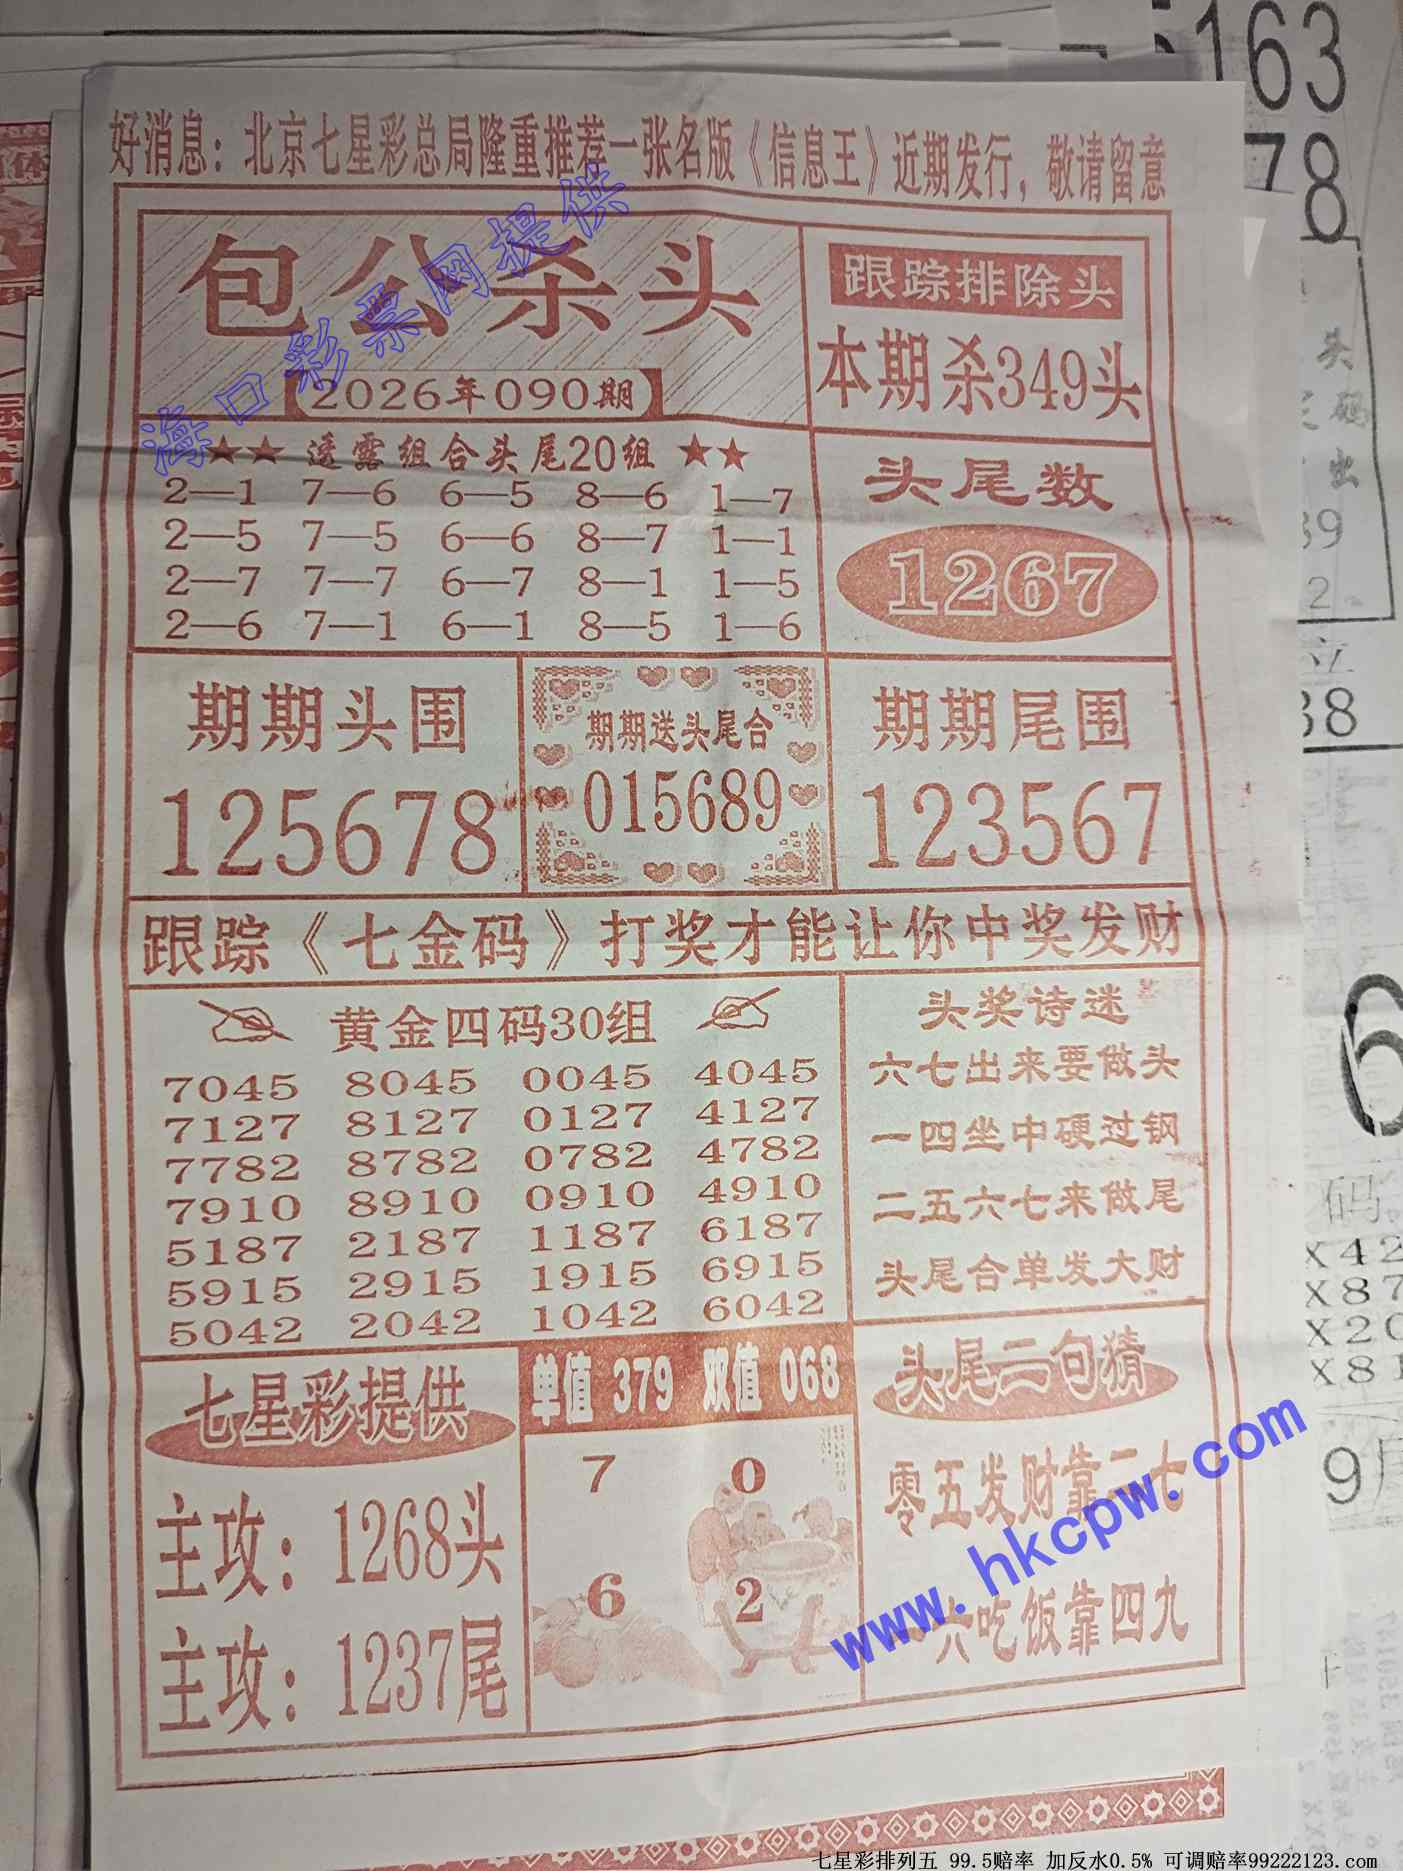 好消息：北京七星彩总局隆重推荐一张名版《信息王》近期发行，敬请留意
包公杀头
2026年090期
跟踪排除头
本期杀349头
★★ 透露组合头尾20组 ★★
2—1 7—6 6—5 8—6 1—7
2—5 7—5 6—6 8—7 1—1
2—7 7—7 6—7 8—1 1—5
2—6 7—1 6—1 8—5 1—6
头尾数
1267
期期头围
125678
期期送头尾合
015689
期期尾围
123567
跟踪《七金码》打奖才能让你中奖发财
黄金四码30组
7045 8045 0045 4045
7127 8127 0127 4127
7782 8782 0782 4782
7910 8910 0910 4910
5187 2187 1187 6187
5915 2915 1915 6915
5042 2042 1042 6042
头奖诗迷
六七出来要做头
一四坐中硬过钢
二五六七来做尾
头尾合单发大财
七星彩提供
主攻：1268头
主攻：1237尾
单值 379 双值 068
7 0
6 2
头尾二句猜
零五发财靠二七
六吃饭靠四九
海口彩票网提供
www.hkcpw.com
163
78
头
码
出
39
2
立
38
6
码
X42
X87
X20
X81
9尾
七星彩排列五 99.5赔率 加反水0.5% 可调赔率99222123.com